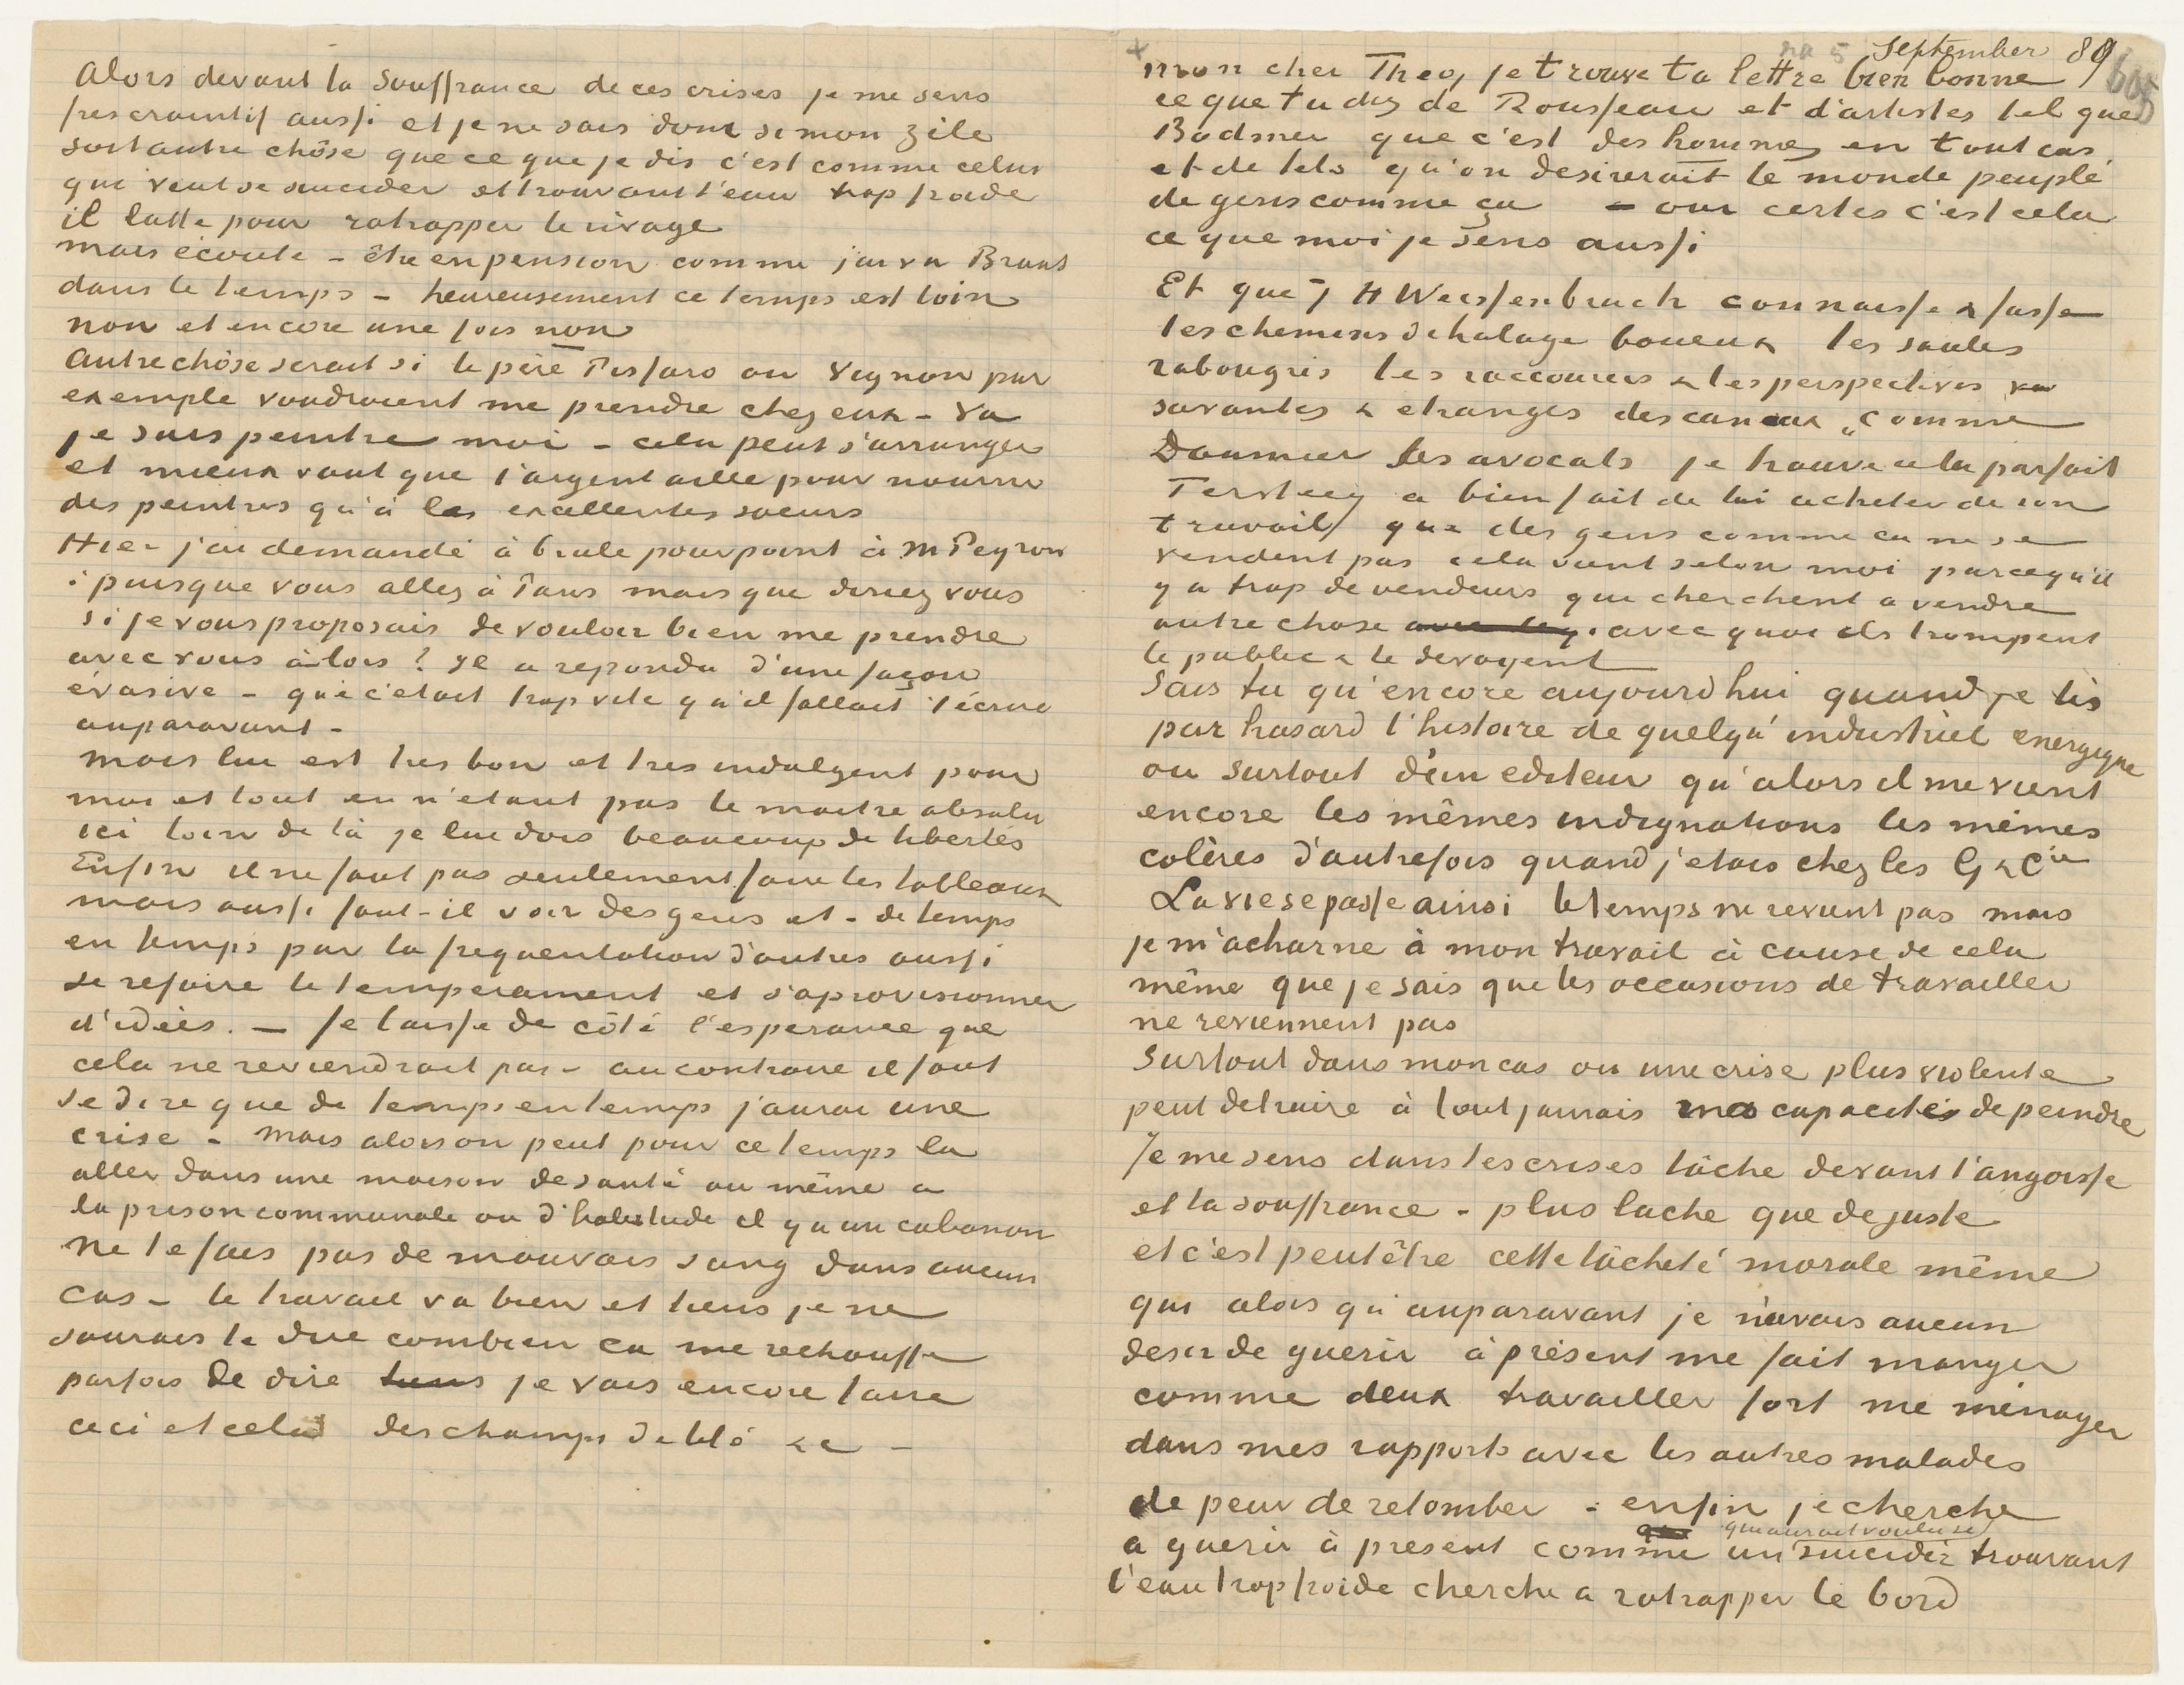 Alors devant la souffrance de ces crises je me sens
tres craintif aussi et je ne sais donc si mon zèle
soit autre chôse que ce que je dis c'est comme celui
qui veut se suicider et trouvant l'eau trop froide
il lutte pour ratrapper le rivage
mais écoute – être en pension comme j'ai vu Braat
dans le temps – heureusement ce temps est loin
non et encore une fois non
Autre chôse serait si le père Pissaro ou Vignon par
exemple voudraient me prendre chez eux – va
je suis peintre moi – cela peut s'arranger
et mieux vaut que l'argent aille pour nourrir
des peintres qu'à les excellentes soeurs
Hier j'ai demandé à brule pourpoint à M Peyron
: puisque vous allez à Paris mais que diriez vous
si je vous proposais de vouloir bien me prendre
avec vous alors? Il a repondu d'une façon
évasive – que c'etait trop vite qu'il fallait t'écrire
auparavant –
mais lui est tres bon et tres indulgent pour
moi et tout en n'etant pas le maitre absolu
ici loin de là je lui dois beaucoup de libertés
Enfin il ne faut pas seulement faire des tableaux
mais aussi faut-il voir des gens et – de temps
en temps par la frequentation d'autres aussi
se refaire le temperament et s'aprovisionner
d'idées. – Je laisse de côté l'esperance que
cela ne reviendrait pas – au contraire il faut
se dire que de temps en temps j'aurai une
crise – mais alors on peut pour ce temps la
aller dans une maison de santé ou même a
la prison communale ou d'habitude il y a un cabanon
ne te fais pas de mauvais sang dans aucun
cas – le travail va bien et tiens je ne
saurais te dire combien ca me rechauffe
parfois de dire tiens je vais encore faire
ceci et cela des champs de blé &c –
September 89
mon cher Theo, je trouve ta lettre bien bonne
ce que tu dis de Rousseau et d'artistes tel que
Bodmer que c'est des hommes en tout cas
et de tels qu'on desirerait le monde peuplé
de gens comme ça – oui certes c'est cela
ce que moi je sens aussi
Et que J H Weissenbruch connaisse & fasse
les chemins de halage boueux les saules
rabougris les raccourcis & les perspectives
savantes & etranges des canaux „comme
Daumier les avocats je trouve cela parfait
Tersteeg a bien fait de lui acheter de son
travail, que des gens comme ca ne se
vendent pas cela vient selon moi parcequ'il
y a trop de vendeurs qui cherchent a vendre
autre chose avec quoi ils trompent
le public & le devoyent
Sais tu qu'encore aujourdhui quand je lis
par hasard l'histoire de quelqu' industriel energique
ou surtout d'un editeur qu'alors il me vient
encore les mêmes indignations les mêmes
colères d'autrefois quand j'etais chez les G & Cie
La vie se passe ainsi le temps ne revient pas mais
je m'acharne à mon travail à cause de cela
même que je sais que les occasions de travailler
ne reviennent pas
Surtout dans mon cas ou une crise plus violente
peut detruire à tout jamais ma capacité de peindre
Je me sens dans les crises lâche devant l'angoisse
et la souffrance – plus lache que de juste
et c'est peutêtre cette lâcheté morale même
qui alors qu'auparavant je n'avais aucun
desir de guerir à présent me fait manger
comme deux travailler fort me ménager
dans mes rapports avec les autres malades
de peur de retomber – enfin je cherche
a guerir à present comme un qui aurait voulu se suicider trouvant
l'eau trop froide cherche a ratrapper le bord